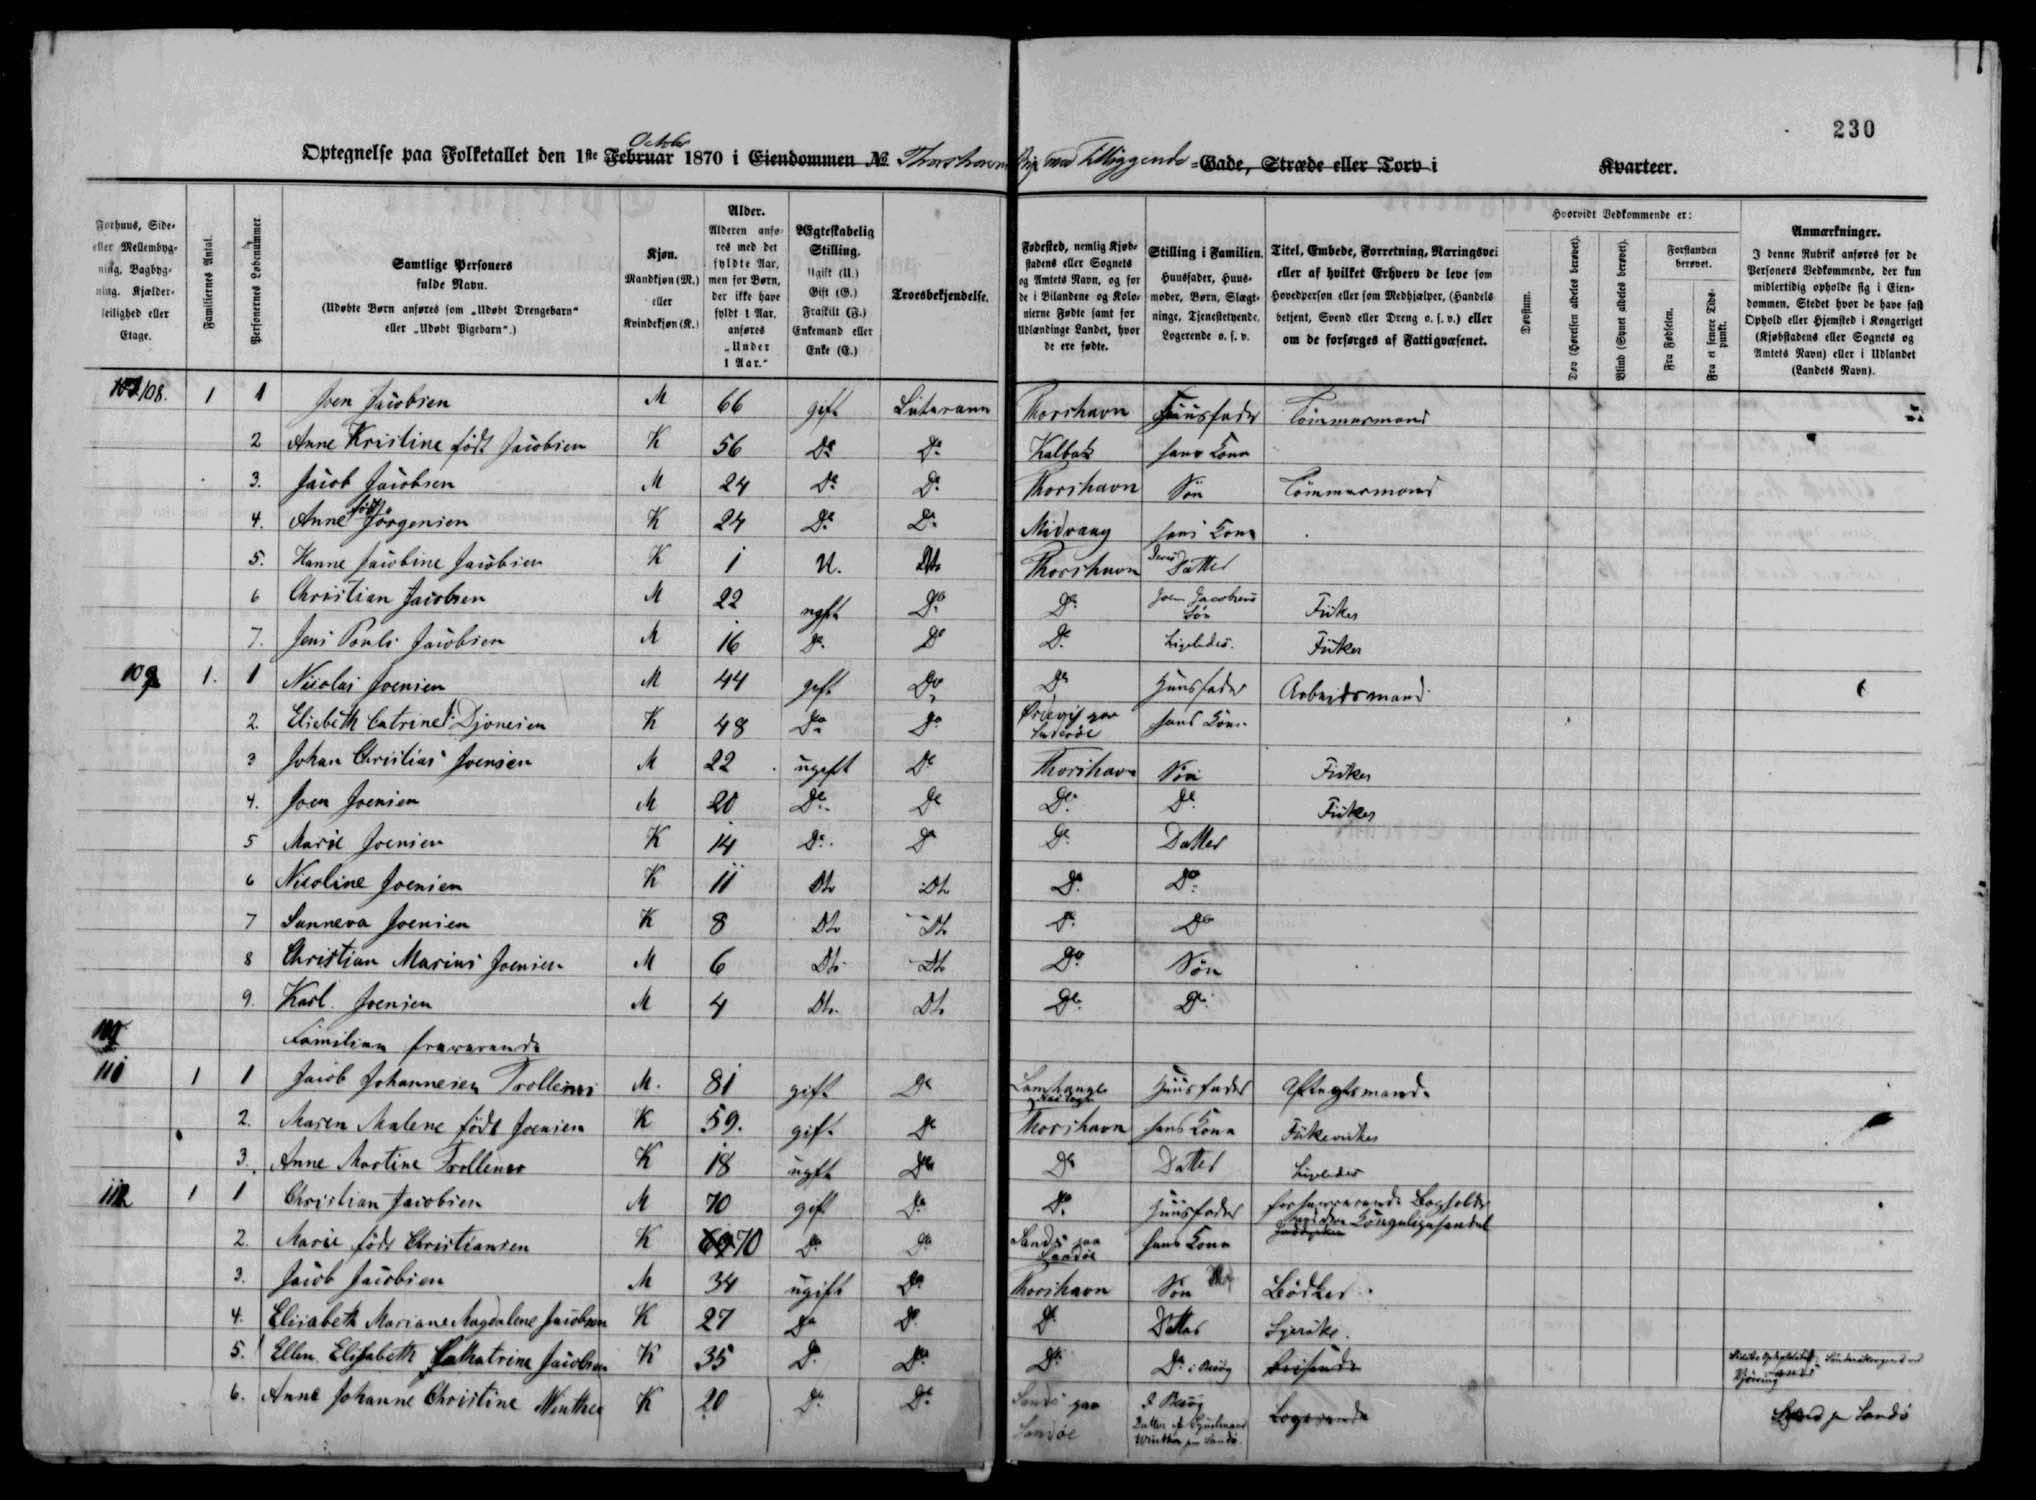 230
Optegnelse paa Folketallet den 1ste Februar October 1870 i Eiendommen No Thorshavn By med tilliggende Gade, Stræde eller Torv i Kvarteer.
Forhuus, Side- eller Mellembyg- ning, Bagbyg- ning. Kjælder- leilighed eller Etage.
Familiernes Antal.
Personernes Løbenummer
Samtlige Personers fulde Navn. (Udøbte Børn anføres som „Udøbt Drengebarn“ eller „Udøbt Pigebarn“.)
Kjøn. Mandkjøn (M.) eller Kvindekjøn (K.)
Alder. Alderen anfø- res med det fyldte Aar, men for Børn, der ikke have fyldt 1 Aar, anføres „Under 1 Aar.“
Ægteskabelig Stilling. Ugift (U.) Gift (G.) Fraskilt (F.) Enkemand eller Enke (E.)
Troesbekjendelse.
Fødested, nemlig Kjøb- stadens eller Sognets og Amtets Navn, og for de i Bilandene og Kolo- nierne Fødte samt for Udlændinge Landet, hvor de ere fødte.
Stilling i Familien. Huusfader, Huus- moder, Børn, Slægt- ninge, Tjenestetyende, Logerende o. s. v.
Titel, Embede, Forretning, Næringsvei eller af hvilket Erhverv de leve som Hovedperson eller som Medhjælper, (Handels betjent, Svend eller Dreng o. s. v.) eller om de forsørges af Fattigvæsenet.
Hvorvidt Vedkommende er:
Døvstum.
Døv (Hørelsen aldeles berøvet).
Blind (Synet aldeles berøvet).
Forstanden berøvet.
Fra Fødselen.
Fra et senere Tids- punkt.
Anmærkninger. I denne Rubrik anføres for de Personers Vedkommende, der kun midlertidig opholde sig i Eien- dommen, Stedet hvor de have fast Ophold eller Hjemsted i Kongeriget (Kjøbstadens eller Sognets og Amtets Navn) eller i Udlandet (Landets Navn).
108. 1 1 Joen Jacobsen M 66 gift Luteraner Thorshavn Huusfader Tömmermand
2 Anne Kristine født Jacobsen K 56 Do Do Kalbak hans Kone
3. Jacob Jacobsen M 24 Do Do Thorshavn Sön Tömmermand
4. Anne født Jörgensen K 24 Do Do Midvaag hans Kone
5. Hanne Jacobine Jacobsen K 1 U. Do Thorshavn Deres Datter
6 Christian Jacobsen M 22 ugft Do Do Joen Jacobsens Sön Fisker
7. Jens Pauli Jacobsen M 16 Do Do Do Ligeledes. Fisker
109 1. 1 Nicolai Joensen M 44 gift Do Do Huusfader Arbeidsmand
2. Elsebeth Catrine f. Djonesen K 48 Do Do hans Kone
3 Johan Christian Joensen M 22 ugift Do Thorshavn Sön Fisker
4. Joen Joensen M 20 Do Do Do Do Fisker
5 Marie Joensen K 14 Do Do Do Datter
6 Nicoline Joensen K 11 Do Do Do Do
7 Sunneva Joensen K 8 Do Do Do Do
8 Christian Marius Joensen M 6 Do Do Do Sön
9. Karl Joensen M 4 Do Do Do Do
Familien fraværende
110 1 1 Jacob Johannesen Trollenes M. 81 gift Do Huusfader Aftægtsmand
2. Maren Malene født Joensen K 59. gift Do Thorshavn hans Kone
3. Anne Martine Trollenes K 18 ugft Do Do Datter Ligeledes
112 1 1 Christian Jacobsen M 70 gift Do Do Huusfader forhenværende Bogholder ved den Kongelige Handel
2. Marie født Christiansen K 70 Do Do Sands paa Sandöe hans Kone
3. Jacob Jacobsen M 34 ugift Do Thorshavn Sön Bödker
4. Elisabeth Mariane Magdalene Jacobsen K 27 Do Do Do Datter Syerske.
5. Ellen Elisabeth Kathatrine Jacobsen K 35 Do Do Do Do i Besög
6. Anne Johanne Christine Winther K 20 Do Do Sands paa Sandöe I Besög Datter af Winther paa Sandö. Logerende Sand paa Sandö